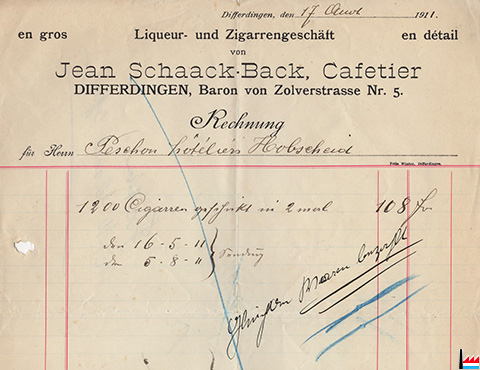 Differdingen, den 17 Aout 1911.
en gros Liqueur- und Zigarrengeschäft en détail
von
Jean Schaack-Back, Cafetier
DIFFERDINGEN, Baron von Zolverstrasse Nr. 5.
Rechnung
für Herrn Peschon hôtelier Hobscheid
Felix Wislez, Differdingen.
1200 Cigarren geschikt in 2 mal 108 fr
den 16-5-11
de 5-8-11 Sendung